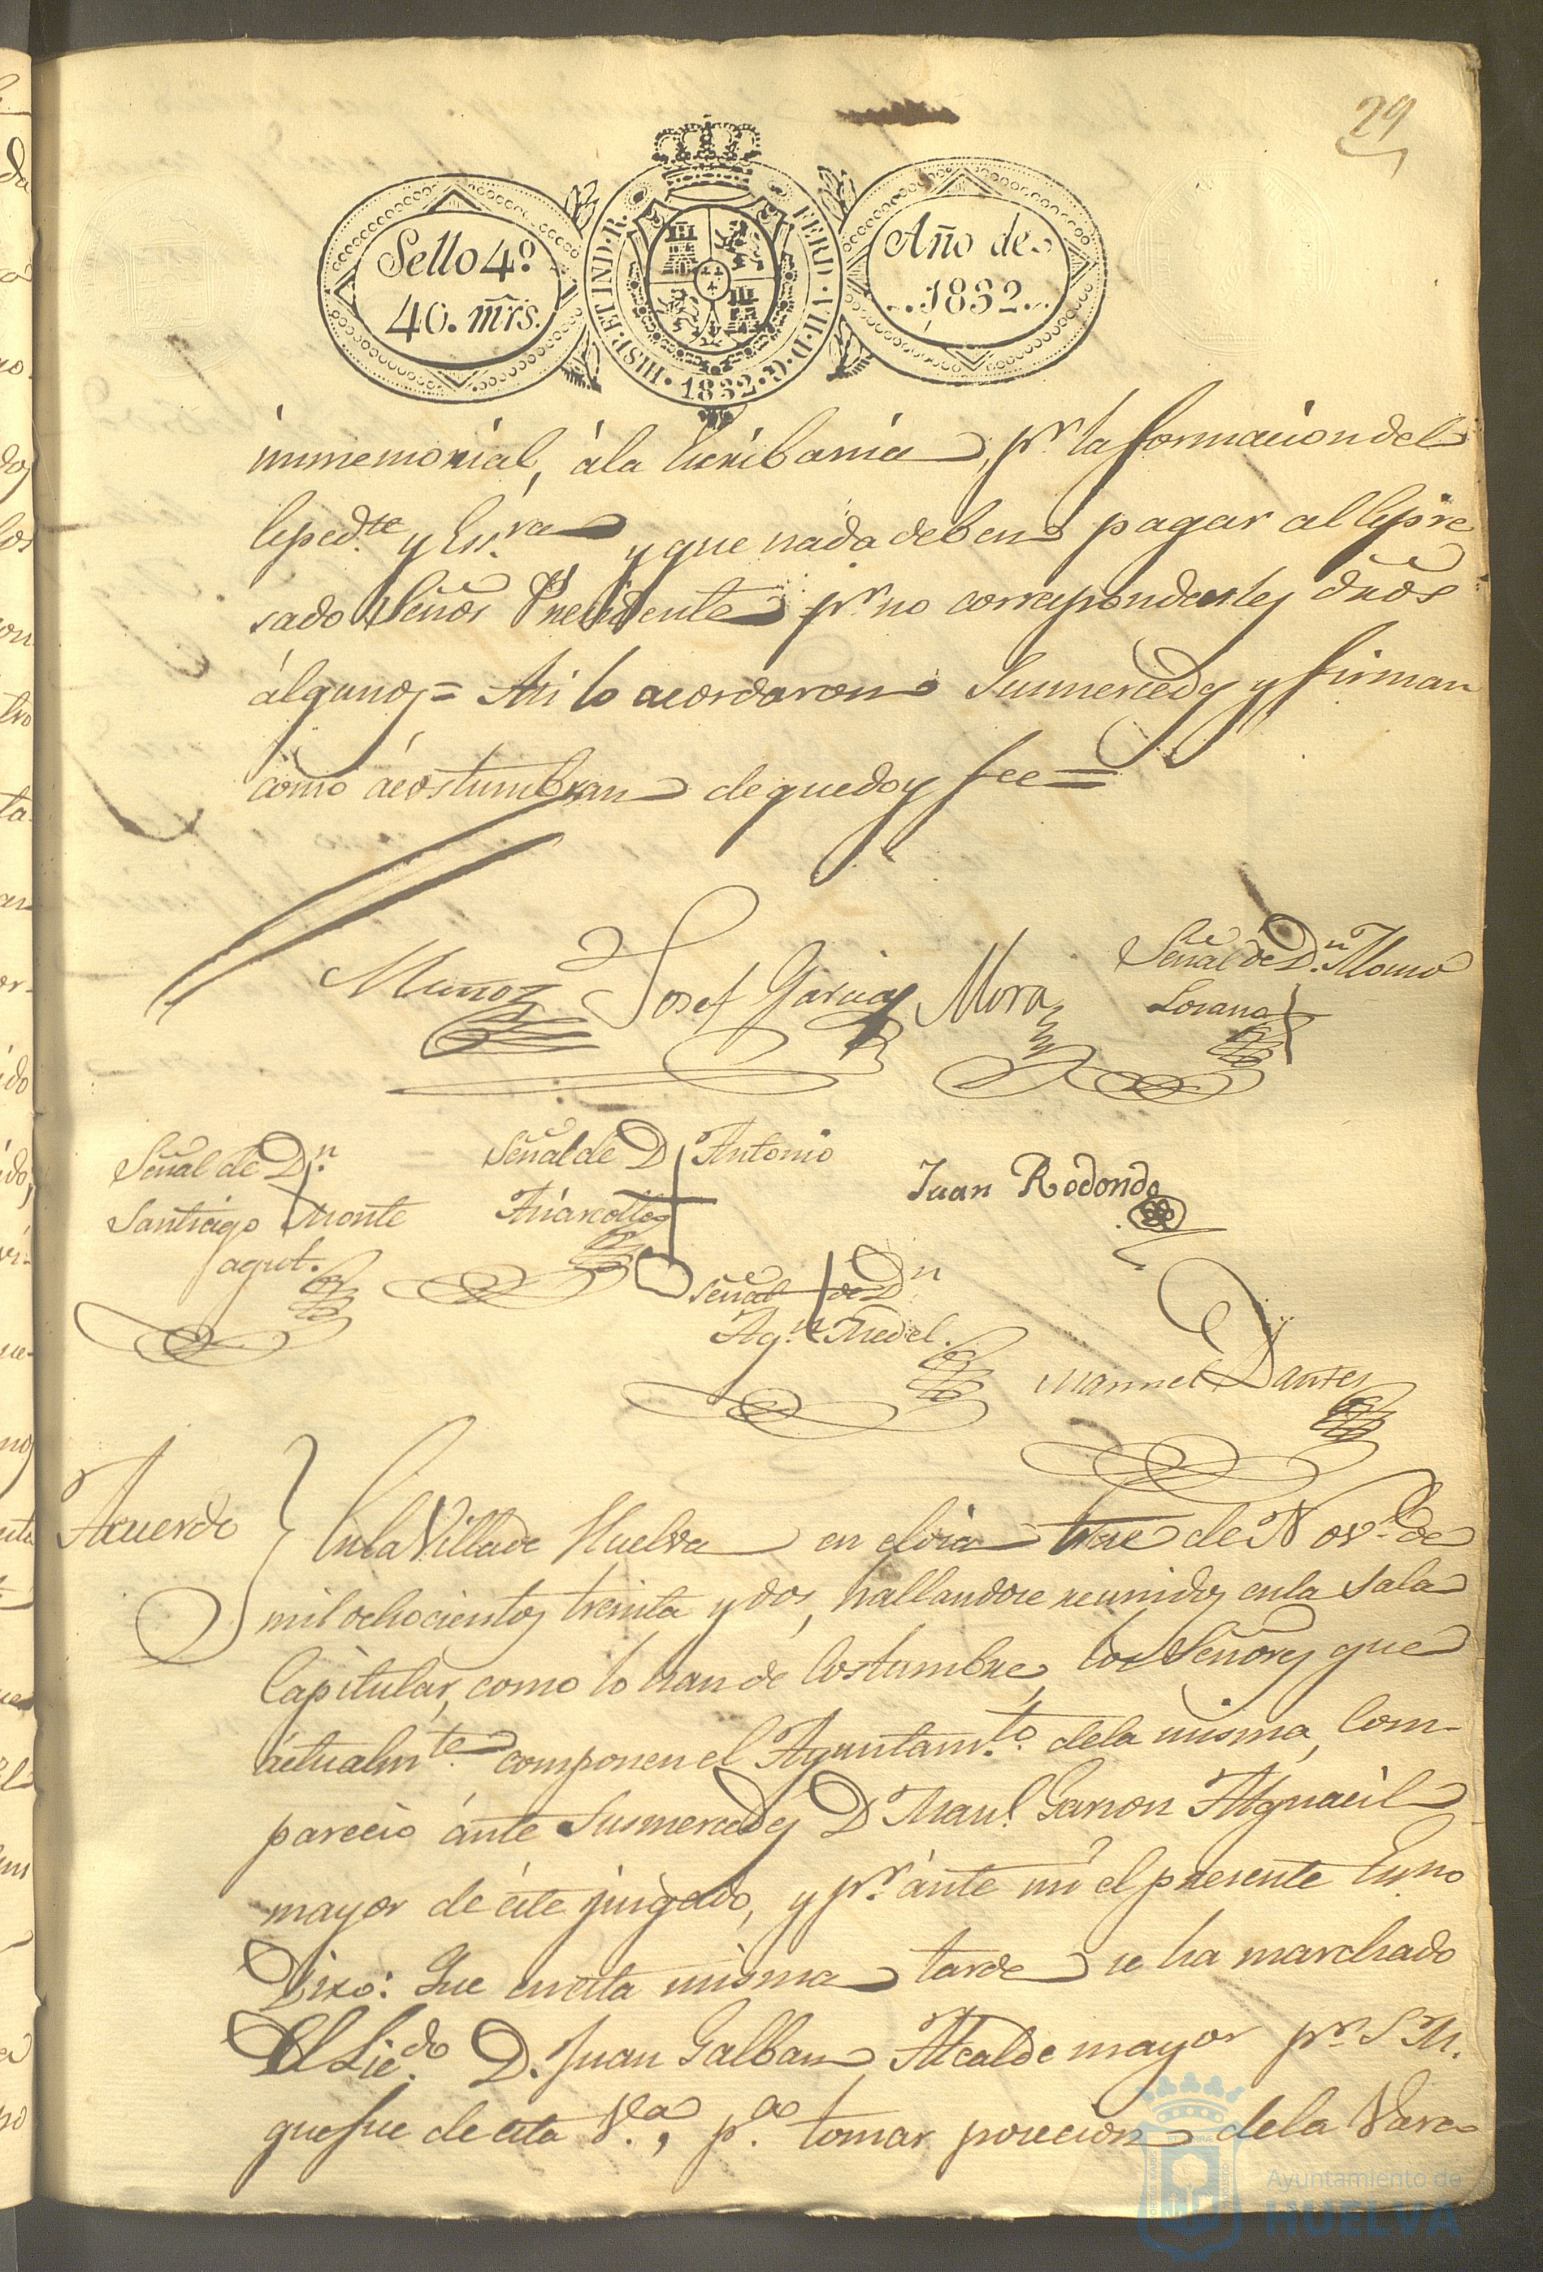 29
Sello 4º
40. mr̃s.
HISP. ET IND. R. FERD. VII. D. G. 1832
Año de
1832
inmemorial, ála Escribania, pr. la formacion del
Espedte. y Essra. y que nada deben pagar al Espre
sado Señor Presidente pr. no corresponderles dr̃os
álgunos = Asi lo acordaron Susmercedes y firman
como ácostumbran de que doy fee =
Muñoz
Josef Garcia
Mora
Señal de Dn. Alonso
Losana
Señal de Dn.
Santiago Monte
agut.
Señal de D Antonio
Juan Redondo
Señal de Dn
Agn. Medel.
Manuel
Acuerdo
En la Villa de Huelva en el dia trece de Nove. de
mil ochocientos treinta y dos, hallandose reunidos en la Sala
Capitular, como lo han de Costumbre, los Señores que
áctualmte. componen el Ayuntamto. dela misma, Com-
parecio ánte Susmercedes D Manl. Garson Alguacil
mayor de éste juzgado, y pr. ánte mi él presente Essno
Dixo: Que enesta misma tarde se ha marchado
El Licdo. D. Juan Galban, Alcalde mayor pr. S. M.
que fue de esta Va., pa. tomar posecion dela Vara
Ayuntamiento de
HUELVA